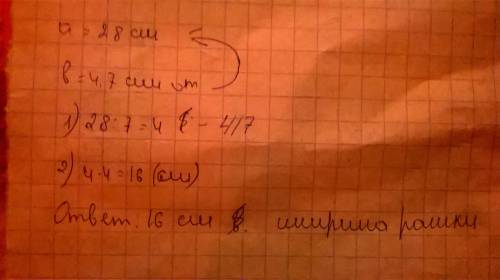 a = 28 см
в = 4.7 см от
1) 28:7=4 - 4/7
2) 4·4=16 (см)
Ответ. 16 см ширина рамки